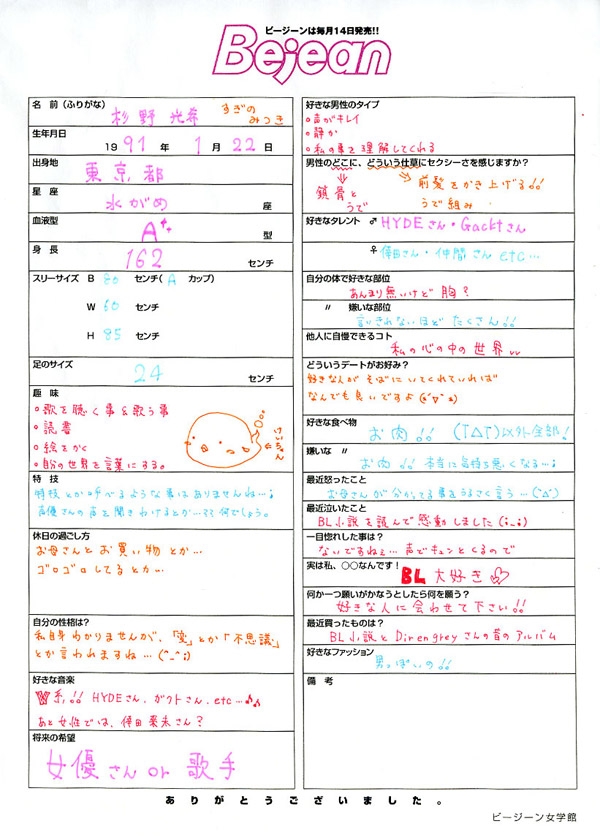 ビージーンは毎月14日発売!!
Bejean
名 前 (ふりがな)
杉野 光希 すぎの みつき
生年月日
1991年 1月 22日
出身地
東京都
星 座
水がめ 座
血液型
A 型
身 長
162 センチ
スリーサイズ B 80 センチ(A カップ)
W 60 センチ
H 85 センチ
足のサイズ
24 センチ
趣 味
・歌を聴く事&歌う事
・読書
・絵をかく
・自分の世界を言葉にする。
けいちゃん
特 技
特技とか呼べるような事はありませんね…;
声優さんの声を聞きわけるとか…って何でしょう。
休日の過ごし方
お母さんとお買い物とか…
ゴロゴロしてるとか…
自分の性格は?
私自身わかりませんが、「変」とか「不思議」
とか言われますね…(^_^;)
好きな音楽
V系!! HYDEさん、ガクトさん、etc…♪♪
あと女性では、倖田來未さん?
将来の希望
女優さん or 歌手
好きな男性のタイプ
・声がキレイ
・静か
・私の事を理解してくれる
男性のどこに、どういう仕草にセクシーさを感じますか?
鎖骨とうで
前髪をかき上げる!!
うで組み
好きなタレント ♂ HYDEさん・Gacktさん
♀ 倖田さん・仲間さん etc…
自分の体で好きな部位
あんまり無いけど 胸?
〃 嫌いな部位
言いきれないほど たくさん!!
他人に自慢できるコト
私の心の中の世界
どういうデートがお好み?
好きな人がそばにいてくれていれば
なんでも良いですよ
好きな食べ物
お肉!! (TΔT)以外全部!
嫌いな 〃
お肉!! 本当に気持ち悪くなる…;
最近怒ったこと
お母さんが分かってる事をうるさく言う…(`Δ´)
最近泣いたこと
BL小説を読んで感動しました(;_;)
一目惚れした事は?
ないですねぇ… 声でキュンとくるので
実は私、〇〇なんです!
BL大好き
何か一つ願いがかなうとしたら何を願う?
好きな人に会わせて下さい!!
最近買ったものは?
BL小説とDirengreyさんの昔のアルバム
好きなファッション
男っぽいの!!
備 考
ありがとうございました。
ビージーン女学館